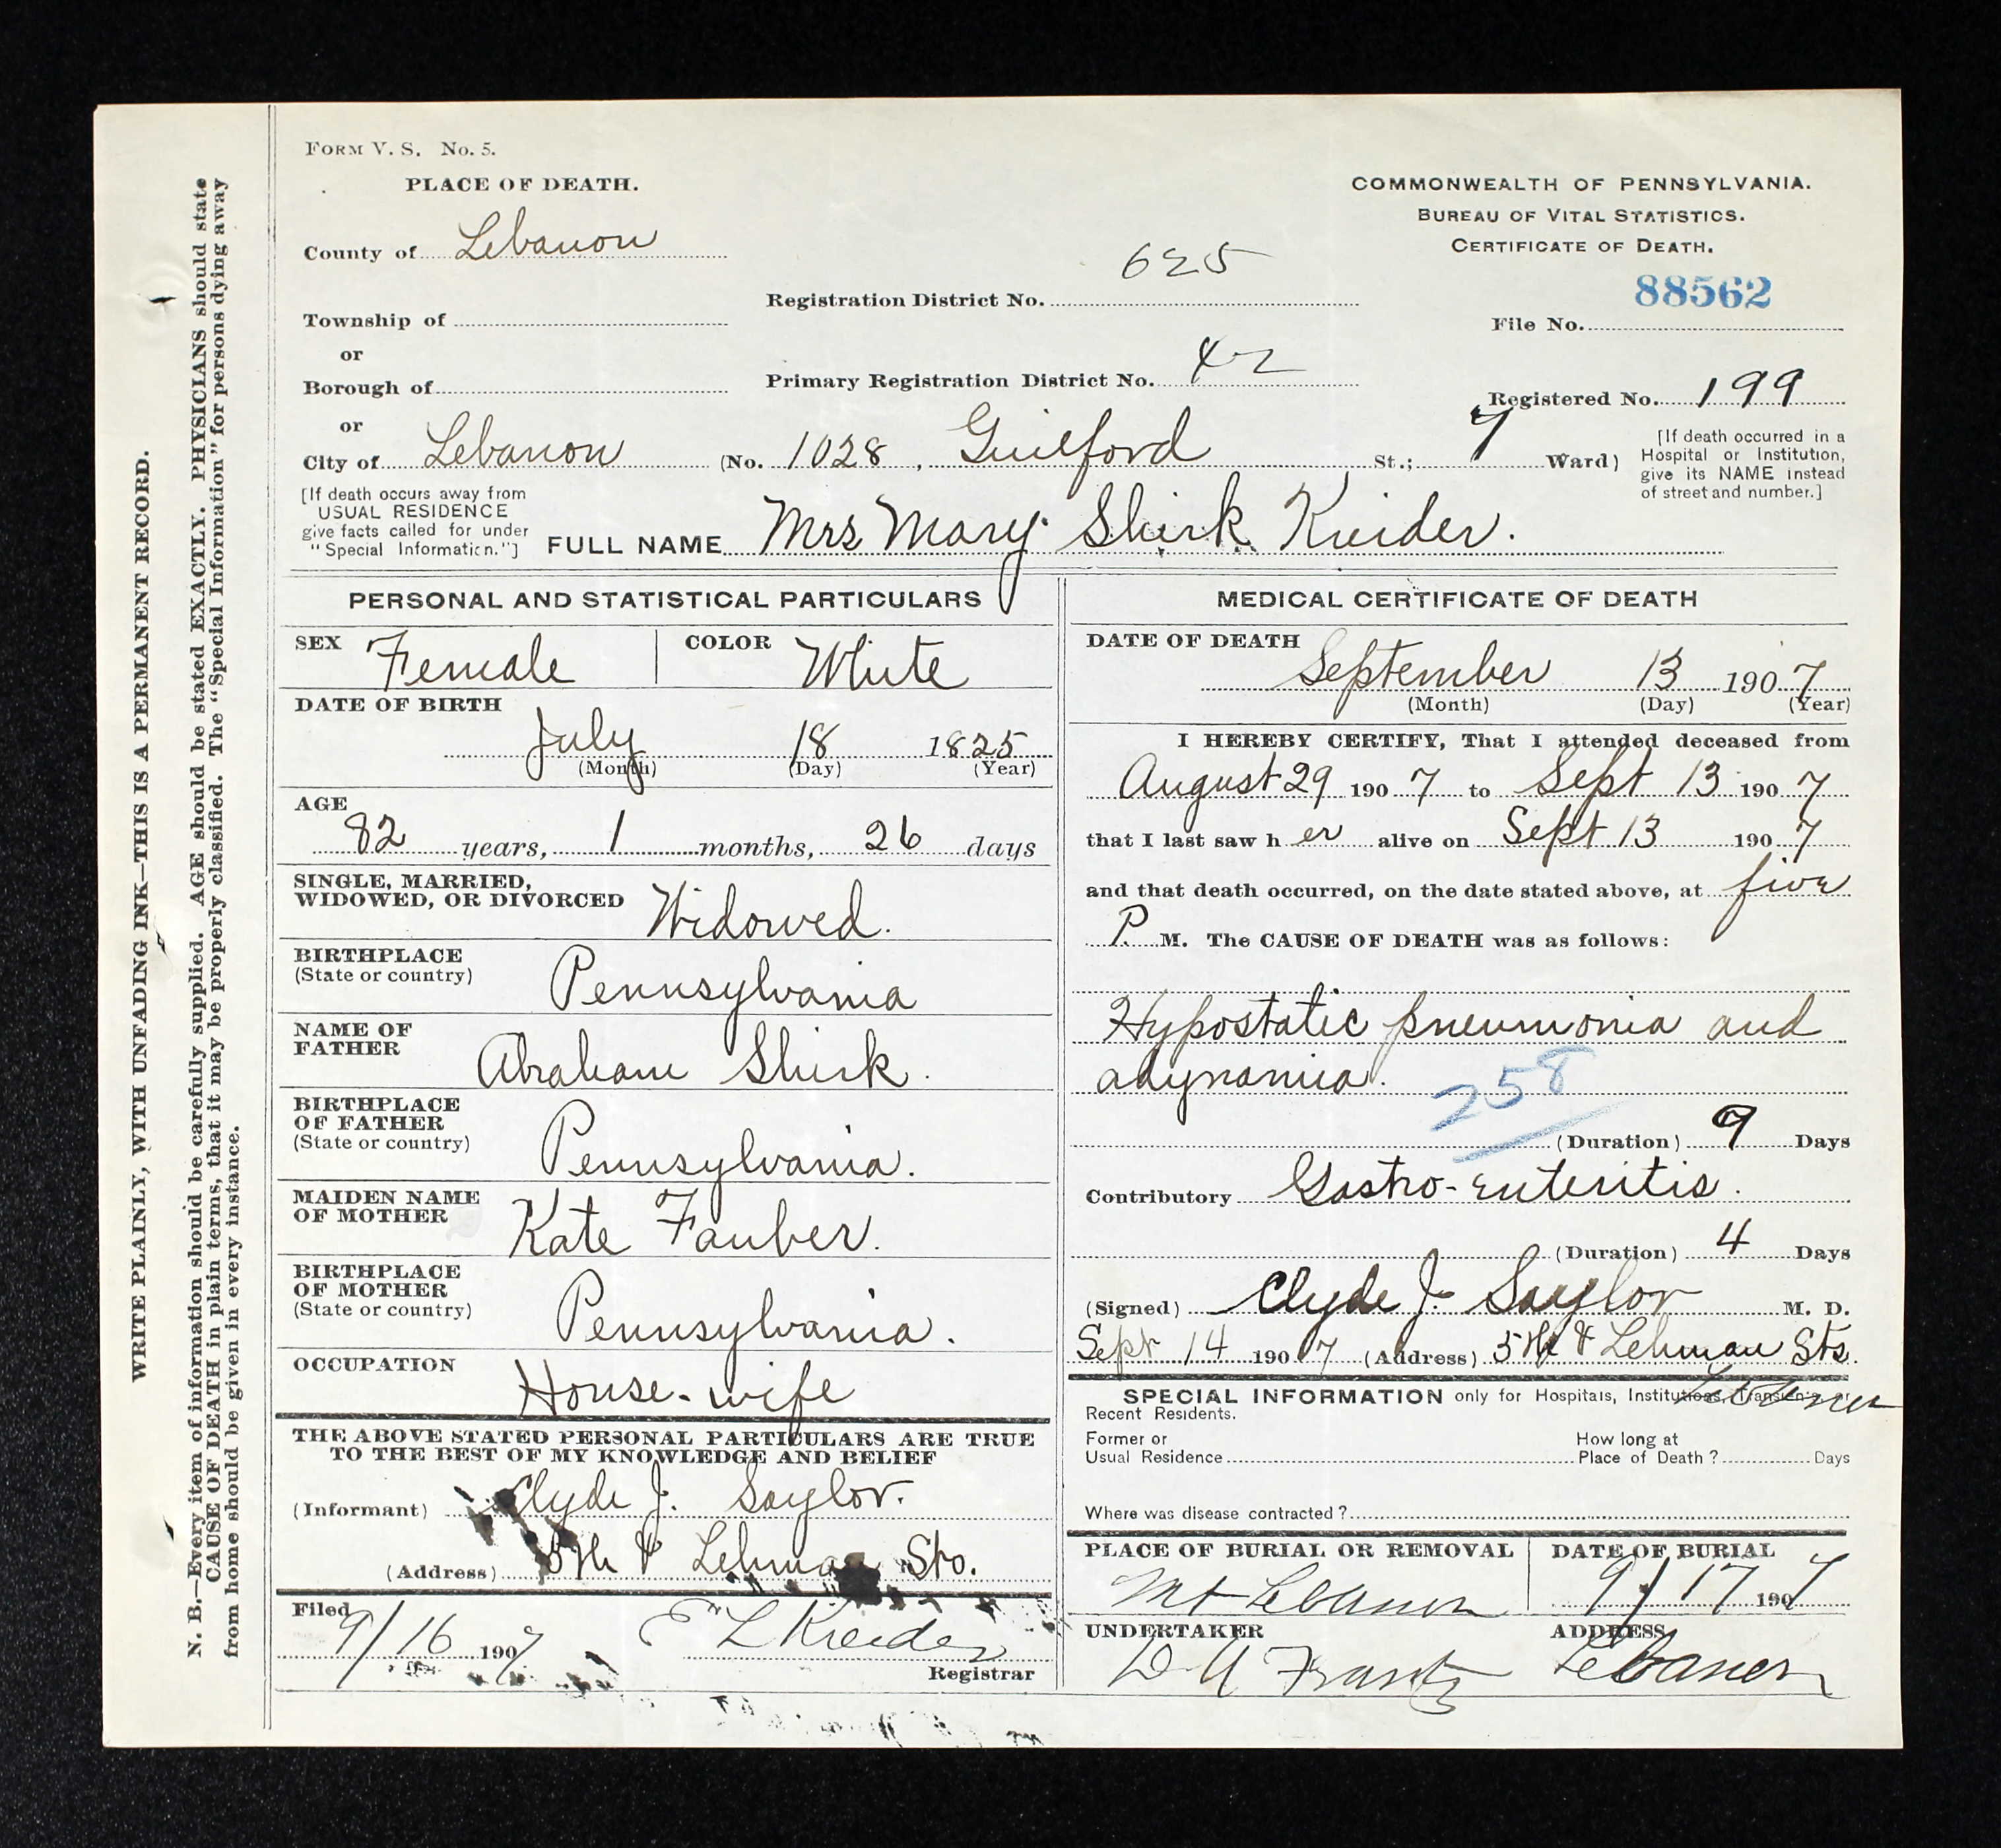 FORM V. S. No. 5.
PLACE OF DEATH.
County of Lebanon
Township of
or
Borough of
or
City of Lebanon (No. 1028, Guilford St.; 7 Ward)
[If death occurs away from
USUAL RESIDENCE
give facts called for under
"Special Information."]
Registration District No. 625
Primary Registration District No. 42
COMMONWEALTH OF PENNSYLVANIA.
BUREAU OF VITAL STATISTICS.
CERTIFICATE OF DEATH.
88562
File No.
Registered No. 199
[If death occurred in a
Hospital or Institution,
give its NAME instead
of street and number.]
FULL NAME Mrs Mary Shirk Kreider.
PERSONAL AND STATISTICAL PARTICULARS
SEX Female COLOR White
DATE OF BIRTH
July 18 1825
(Month) (Day) (Year)
AGE
82 years, 1 months, 26 days
SINGLE, MARRIED,
WIDOWED, OR DIVORCED Widowed.
BIRTHPLACE
(State or country) Pennsylvania
NAME OF
FATHER Abraham Shirk.
BIRTHPLACE
OF FATHER
(State or country) Pennsylvania.
MAIDEN NAME
OF MOTHER Kate Fauber.
BIRTHPLACE
OF MOTHER
(State or country) Pennsylvania.
OCCUPATION
House-wife
THE ABOVE STATED PERSONAL PARTICULARS ARE TRUE
TO THE BEST OF MY KNOWLEDGE AND BELIEF
(Informant) Clyde J. Saylor.
(Address) 5th & Lehman Sts.
Filed
9/16 1907 E L Kreider
Registrar
MEDICAL CERTIFICATE OF DEATH
DATE OF DEATH
September 13 1907
(Month) (Day) (Year)
I HEREBY CERTIFY, That I attended deceased from
August 29 1907 to Sept 13 1907
that I last saw her alive on Sept 13 1907
and that death occurred, on the date stated above, at five
P. M. The CAUSE OF DEATH was as follows:
Hypostatic pneumonia and
adynamia.
258
(Duration) 9 Days
Contributory Gastro-enteritis.
(Duration) 4 Days
(Signed) Clyde J. Saylor M. D.
Sept 14 1907 (Address) 5th & Lehman Sts.
Lebanon
SPECIAL INFORMATION only for Hospitals, Institutions, Transients, or
Recent Residents.
Former or
Usual Residence
How long at
Place of Death? Days
Where was disease contracted?
PLACE OF BURIAL OR REMOVAL
Mt Lebanon
DATE OF BURIAL
9/17 1907
UNDERTAKER
D A Frantz
ADDRESS
Lebanon
WRITE PLAINLY, WITH UNFADING INK—THIS IS A PERMANENT RECORD.
N. B.—Every item of information should be carefully supplied. AGE should be stated EXACTLY. PHYSICIANS should state
CAUSE OF DEATH in plain terms, that it may be properly classified. The "Special Information" for persons dying away
from home should be given in every instance.